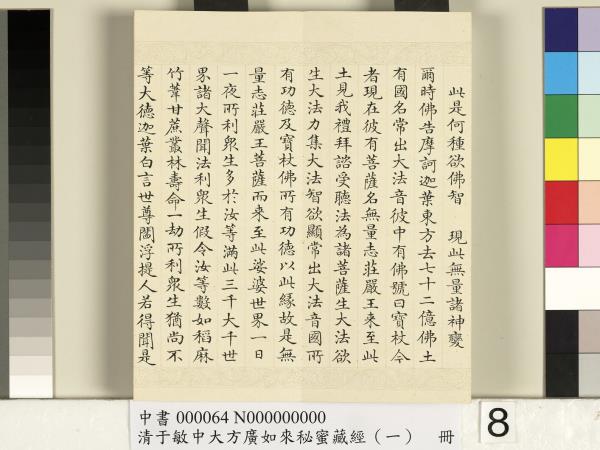 此是何種欲佛智　現此無量諸神變
爾時佛告摩訶迦葉東方去七十二億佛土
有國名常出大法音彼中有佛號曰寶杖今
者現在彼有菩薩名無量志莊嚴王來至此
土見我禮拜諮受聽法為諸菩薩生大法欲
生大法力集大法智欲顯常出大法音國所
有功德及寶杖佛所有功德以此緣故是無
量志莊嚴王菩薩而來至此娑婆世界一日
一夜所利眾生多於汝等滿此三千大千世
界諸大聲聞法利眾生假令汝等數如稻麻
竹葦甘蔗叢林壽命一劫所利眾生猶尚不
等大德迦葉白言世尊閻浮提人若得聞是
中書 000064 N000000000
清于敏中大方廣如來秘蜜藏經（一） 冊
8